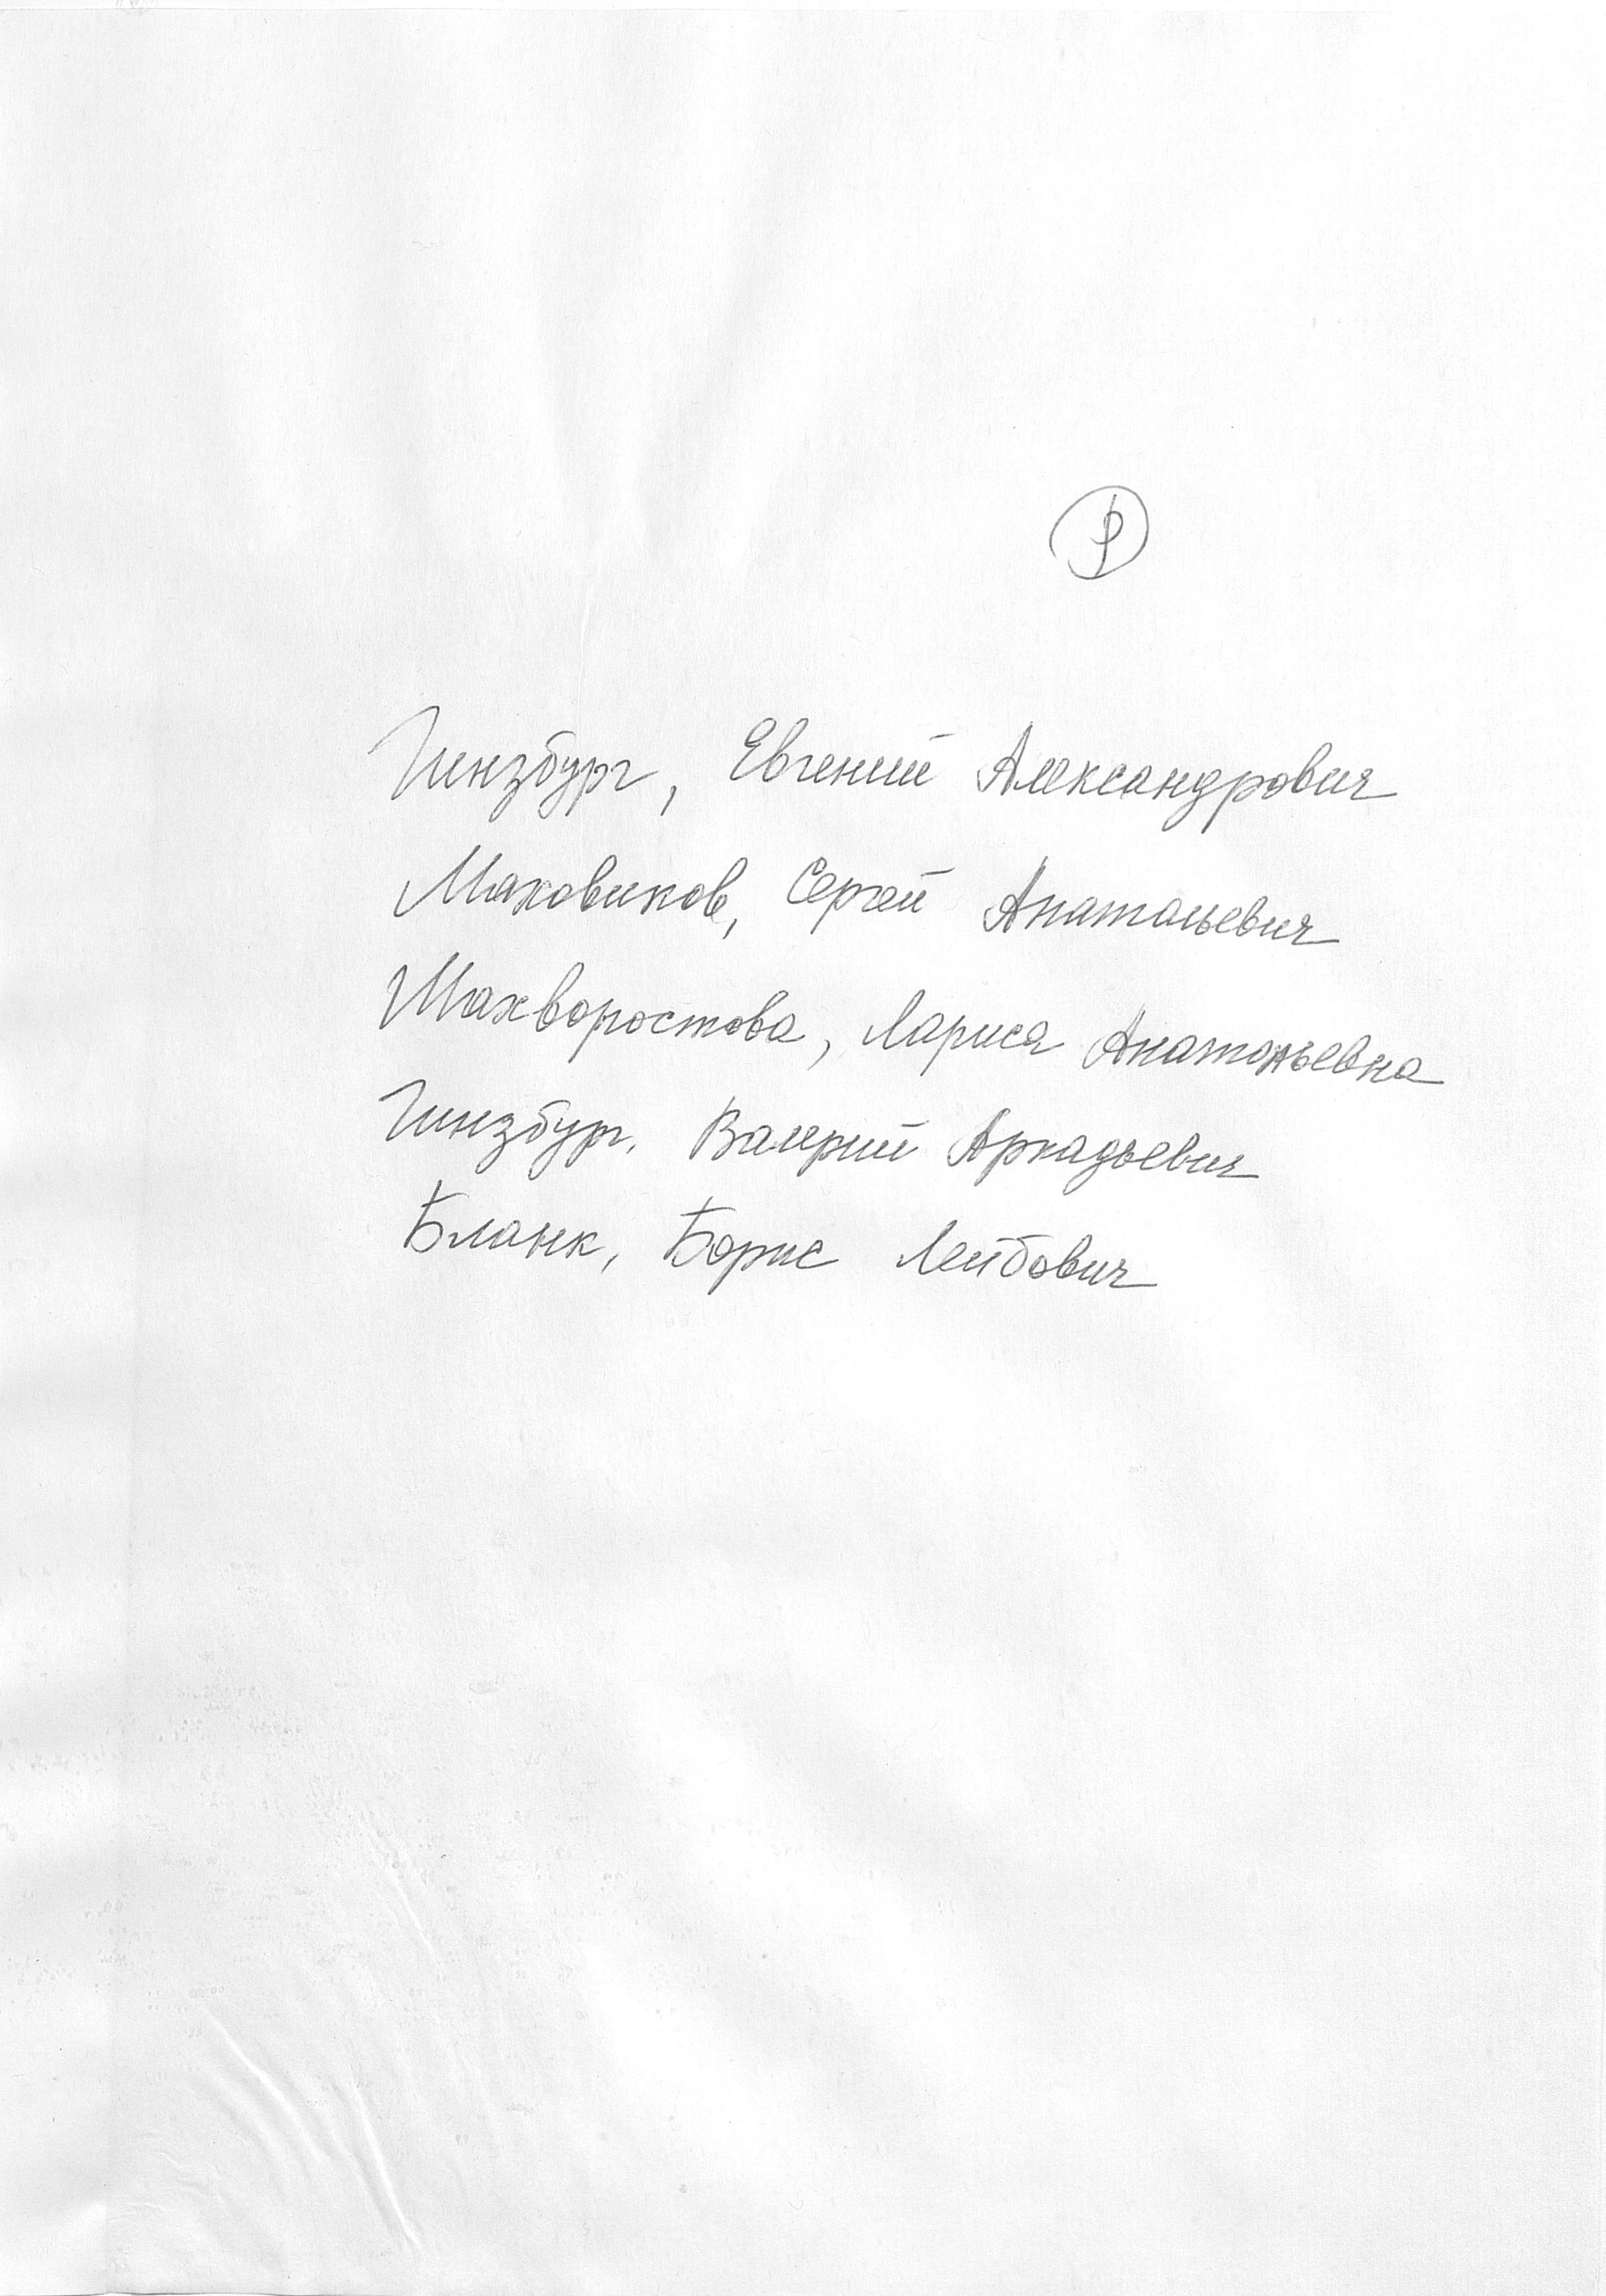 Ф
Гинзбург, Евгений Александрович
Маховиков, Сергей Анатольевич
Шахворостова, Лариса Анатольевна
Гинзбург, Валерий Аркадьевич
Бланк, Борис Лейбович